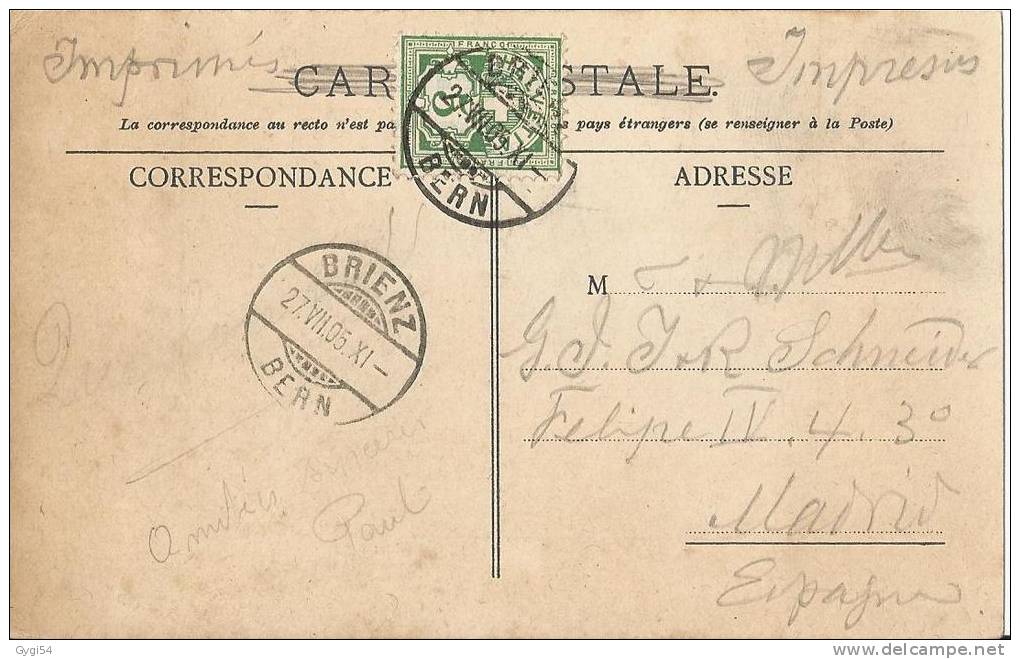 Imprimés
CARTE POSTALE.
Impresos
La correspondance au recto n'est pas pays étrangers (se renseigner à la Poste)
FRANCO
HELVETIA
27.VII.05.XI
BERN
CORRESPONDANCE
ADRESSE
BRIENZ
27.VII.05.XI-
BERN
M
G. J. Schneider
Felipe IV. 4. 3º
Madrid
Espagne
Amitiés
Paul
Gygi54